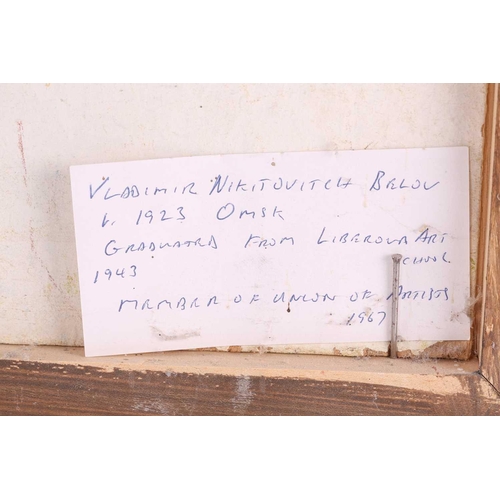 VLADIMIR NIKITOVITCH BELOV
b. 1923 OMSK
GRADUATED FROM LIBEROUR ART
SCHOOL
1943
MEMBER OF UNION OF ARTISTS
1967